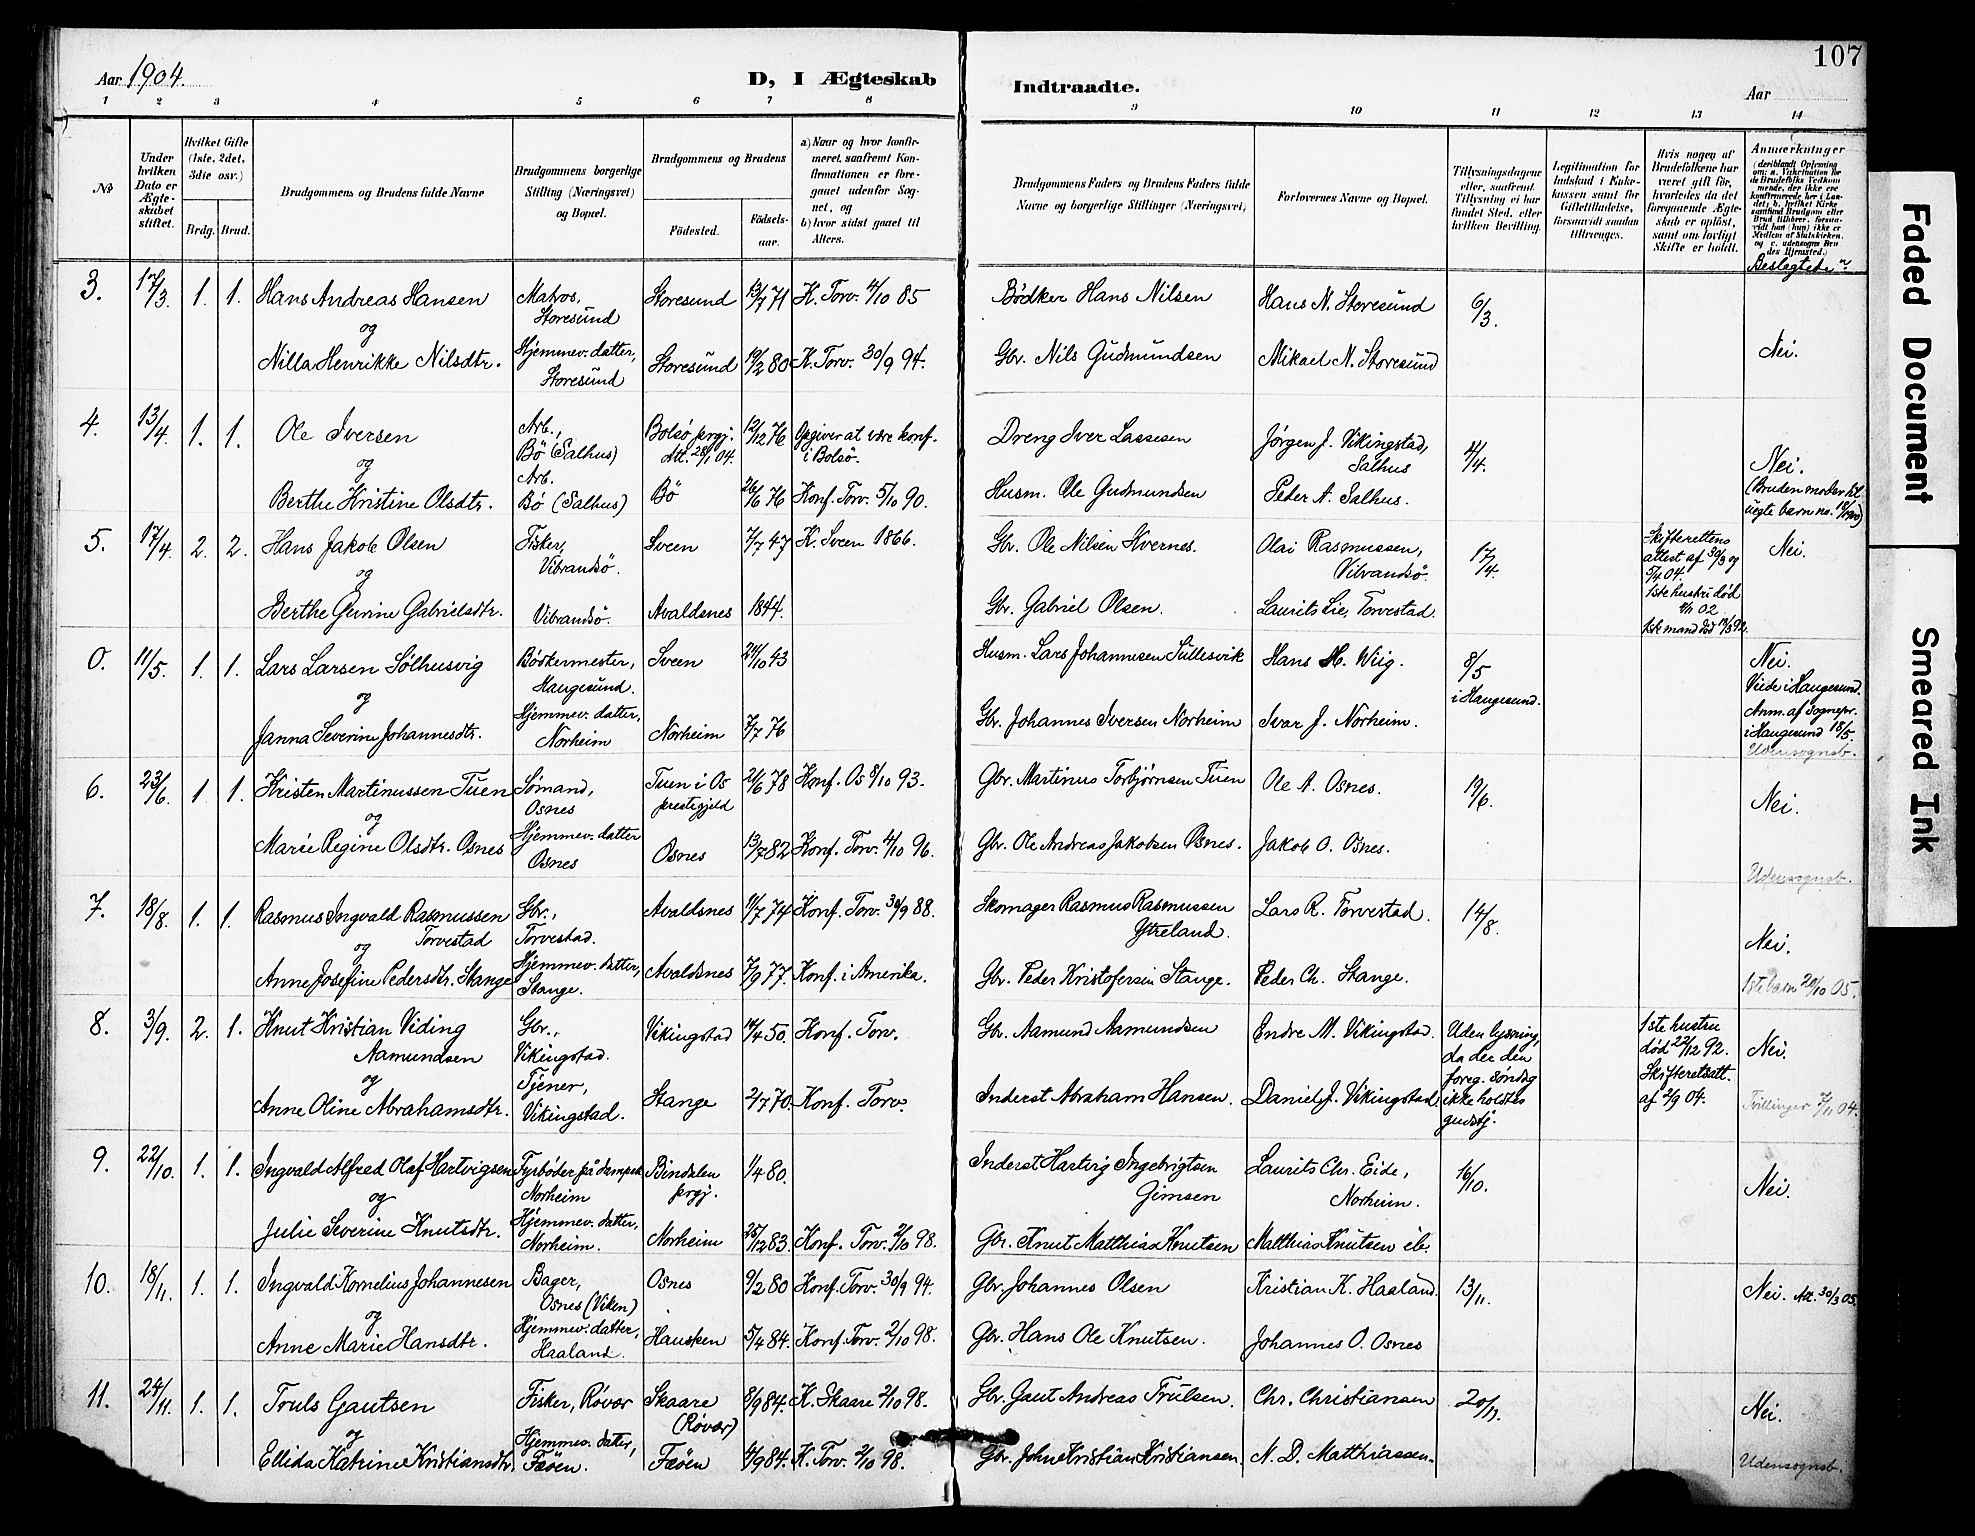 107
Aar 1904.
D, I Ægteskab Indtraadte.
Aar
1 2 3 4 5 6 7 8 9 10 11 12 13 14
No
Under hvilken Dato er Ægteskabet stiftet.
Hvilket Gifte (1ste, 2det, 3die osv.)
Brdg. Brud.
Brudgommens og Brudens fulde Navne
Brudgommens borgerlige Stilling (Næringsvei) og Bopæl.
Brudgommens og Brudens
Fødested.
Fødselsaar.
a) Naar og hvor konfirmeret, saafremt Konfirmationen er foregaaet udenfor Sognet, og
b) hvor sidst gaaet til Alters.
Brudgommens Faders og Brudens Faders fulde Navne og borgerlige Stillinger (Næringsvei)
Forlovernes Navne og Bopæl.
Tillysningsdagene eller, saafremt Tillysning ei har fundet Sted, efter hvilken Bevilling.
Legitimation for Indskud i Enkekassen samt for Giftetilladelse, forsaavidt saadan tiltrænges.
Hvis nogen af Brudefolkene har været gift før, hvorledes da det foregaaende Ægteskab er opløst, samt om lovligt Skifte er holdt.
Anmærkninger
Beslegtede?
3. 17/3 1. 1. Hans Andreas Hansen Matros, Storesund Storesund 13/7 71 K. Torv. 4/10 85 Bødker Hans Nilsen Hans N. Storesund 6/3.
og
Nilla Henrikke Nilsdtr. Hjemmev. datter, Storesund Storesund 19/2 80 K. Torv. 30/9 94. Gbr. Nils Gudmundsen Mikael N. Storesund Nei.
4. 13/4. 1. 1. Ole Iversen Arb., Bö (Salhus) Bolsö prgj. Att. 28/1 04. 12/12 76 Opgiver at være konf. i Bolsö. Dreng Iver Lassesen Jörgen J. Vikingstad, Salhus 4/4. Nei.
og
Berthe Kristine Olsdtr. Arb. Bö (Salhus) Bö 26/6 76 Konf. Torv. 5/10 90. Husm. Ole Gudmundsen Peder A. Salhus. (Bruden moder til uegte barn no. 18/1900)
5. 17/4 2. 2. Hans Jakob Olsen Fisker, Vibrandsö. Sveen 7/7 47 K. Sveen 1866. Gbr. Ole Nilsen Kvernes. Olai Rasmussen, Vibrandsö. 17/4. Skifterettens attest af 30/3 og 5/4 04. 1ste hustru död 4/1 02 Nei.
og
Berthe Gurine Gabrielsdtr. Vibrandsö. Avaldsnes 1844. Gbr. Gabriel Olsen. Laurits Lie, Torvestad. 1ste mand död 12/3 92.
0. 11/5. 1. 1. Lars Larsen Sölhusvig Bödkermester, Haugesund. Sveen 24/10 43 Husm. Lars Johannesen Sullesvik Hans H. Wiig. 8/5 i Haugesund. Nei. Viede i Haugesund.
og
Janna Severine Johannesdtr. Hjemmev. datter, Norheim Norheim 7/7 76 Gbr. Johannes Iversen Norheim Ivar J. Norheim. Anm. af sognepr. i Haugesund 18/5. Udensognsb.
6. 23/6. 1. 1. Kristen Martinussen Tuen Sömand, Osnes Tuen i Os prestegjeld 21/6 78 Konf. Os 8/10 93. Gbr. Martinus Torbjörnsen Tuen Ole A. Osnes. 19/6. Nei.
og
Marie Regine Olsdtr. Osnes Hjemmev. datter Osnes Osnes 13/7 82 Konf. Torv. 4/10 96. Gbr. Ole Andreas Jakobsen Osnes. Jakob O. Osnes. Udensognsb.
7. 18/8. 1. 1. Rasmus Ingvald Rasmussen Torvestad Gbr., Torvestad. Avaldsnes 11/7 74 Konf. Torv. 30/9 88. Skomager Rasmus Rasmussen Ytreland. Lars R. Torvestad. 14/8. Nei.
og
Anne Josefine Pedersdtr. Stange Hjemmev. datter, Stange. Avaldsnes 7/9 77. Konf. i Amerika. Gbr. Peder Kristofersen Stange. Peder Ch. Stange. 1ste barn 20/10 05.
8. 3/9. 2. 1. Knut Kristian Viding Aamundsen Gbr., Vikingstad. Vikingstad 14/4 50. Konf. Torv. Gbr. Aamund Aamundsen Endre M. Vikingstad. Uden lysning, da der den foreg. söndag ikke holdtes gudstj. 1ste hustru död 22/12 92. Skifteretsatt. af 2/9 04. Nei.
og
Anne Oline Abrahamsdtr. Tjener, Vikingstad. Stange 2/7 70. Konf. Torv. Inderst Abraham Hansen. Daniel J. Vikingstad. Tvillinger 7/11 04.
9. 22/10. 1. 1. Ingvald Alfred Olaf Hartvigsen Fyrböder på dampsk. Norheim Bindalen prgj. 1/4 80. Inderst Hartvig Ingebrigtsen Gimsen Laurits Chr. Eide, Norheim. 16/10. Nei.
og
Julie Severine Knutsdtr. Hjemmev. datter, Norheim. Norheim 25/12 83. Konf. Torv. 2/10 98. Gbr. Knut Matthias Knutsen Matthias Knutsen ib.
10. 18/11. 1. 1. Ingvald Kornelius Johannesen Bager, Osnes (Viken) Osnes 9/2 80 Konf. Torv. 30/9 94. Gbr. Johannes Olsen Kristian K. Haaland. 13/11. Nei. Att. 30/3 05.
og
Anne Marie Hansdtr. Hjemmev. datter, Haaland. Hausken 5/4 84. Konf. Torv. 2/10 98. Gbr. Hans Ole Knutsen. Johannes O. Osnes
11. 24/11. 1. 1. Truls Gautsen Fisker, Rövær Skaare (Rövær) 8/9 84. K. Skaare 2/10 98. Gbr. Gaut Andreas Trulsen. Chr. Christiansen 20/11. Nei.
og
Ellida Katrine Kristiansdtr. Hjemmev. datter, Fæöen. Fæöen 4/9 84. K. Torv. 2/10 98. Gbr. John Kristian Kristiansen. N. D. Matthiassen. Udensognsb.
Faded Document
Smeared Ink